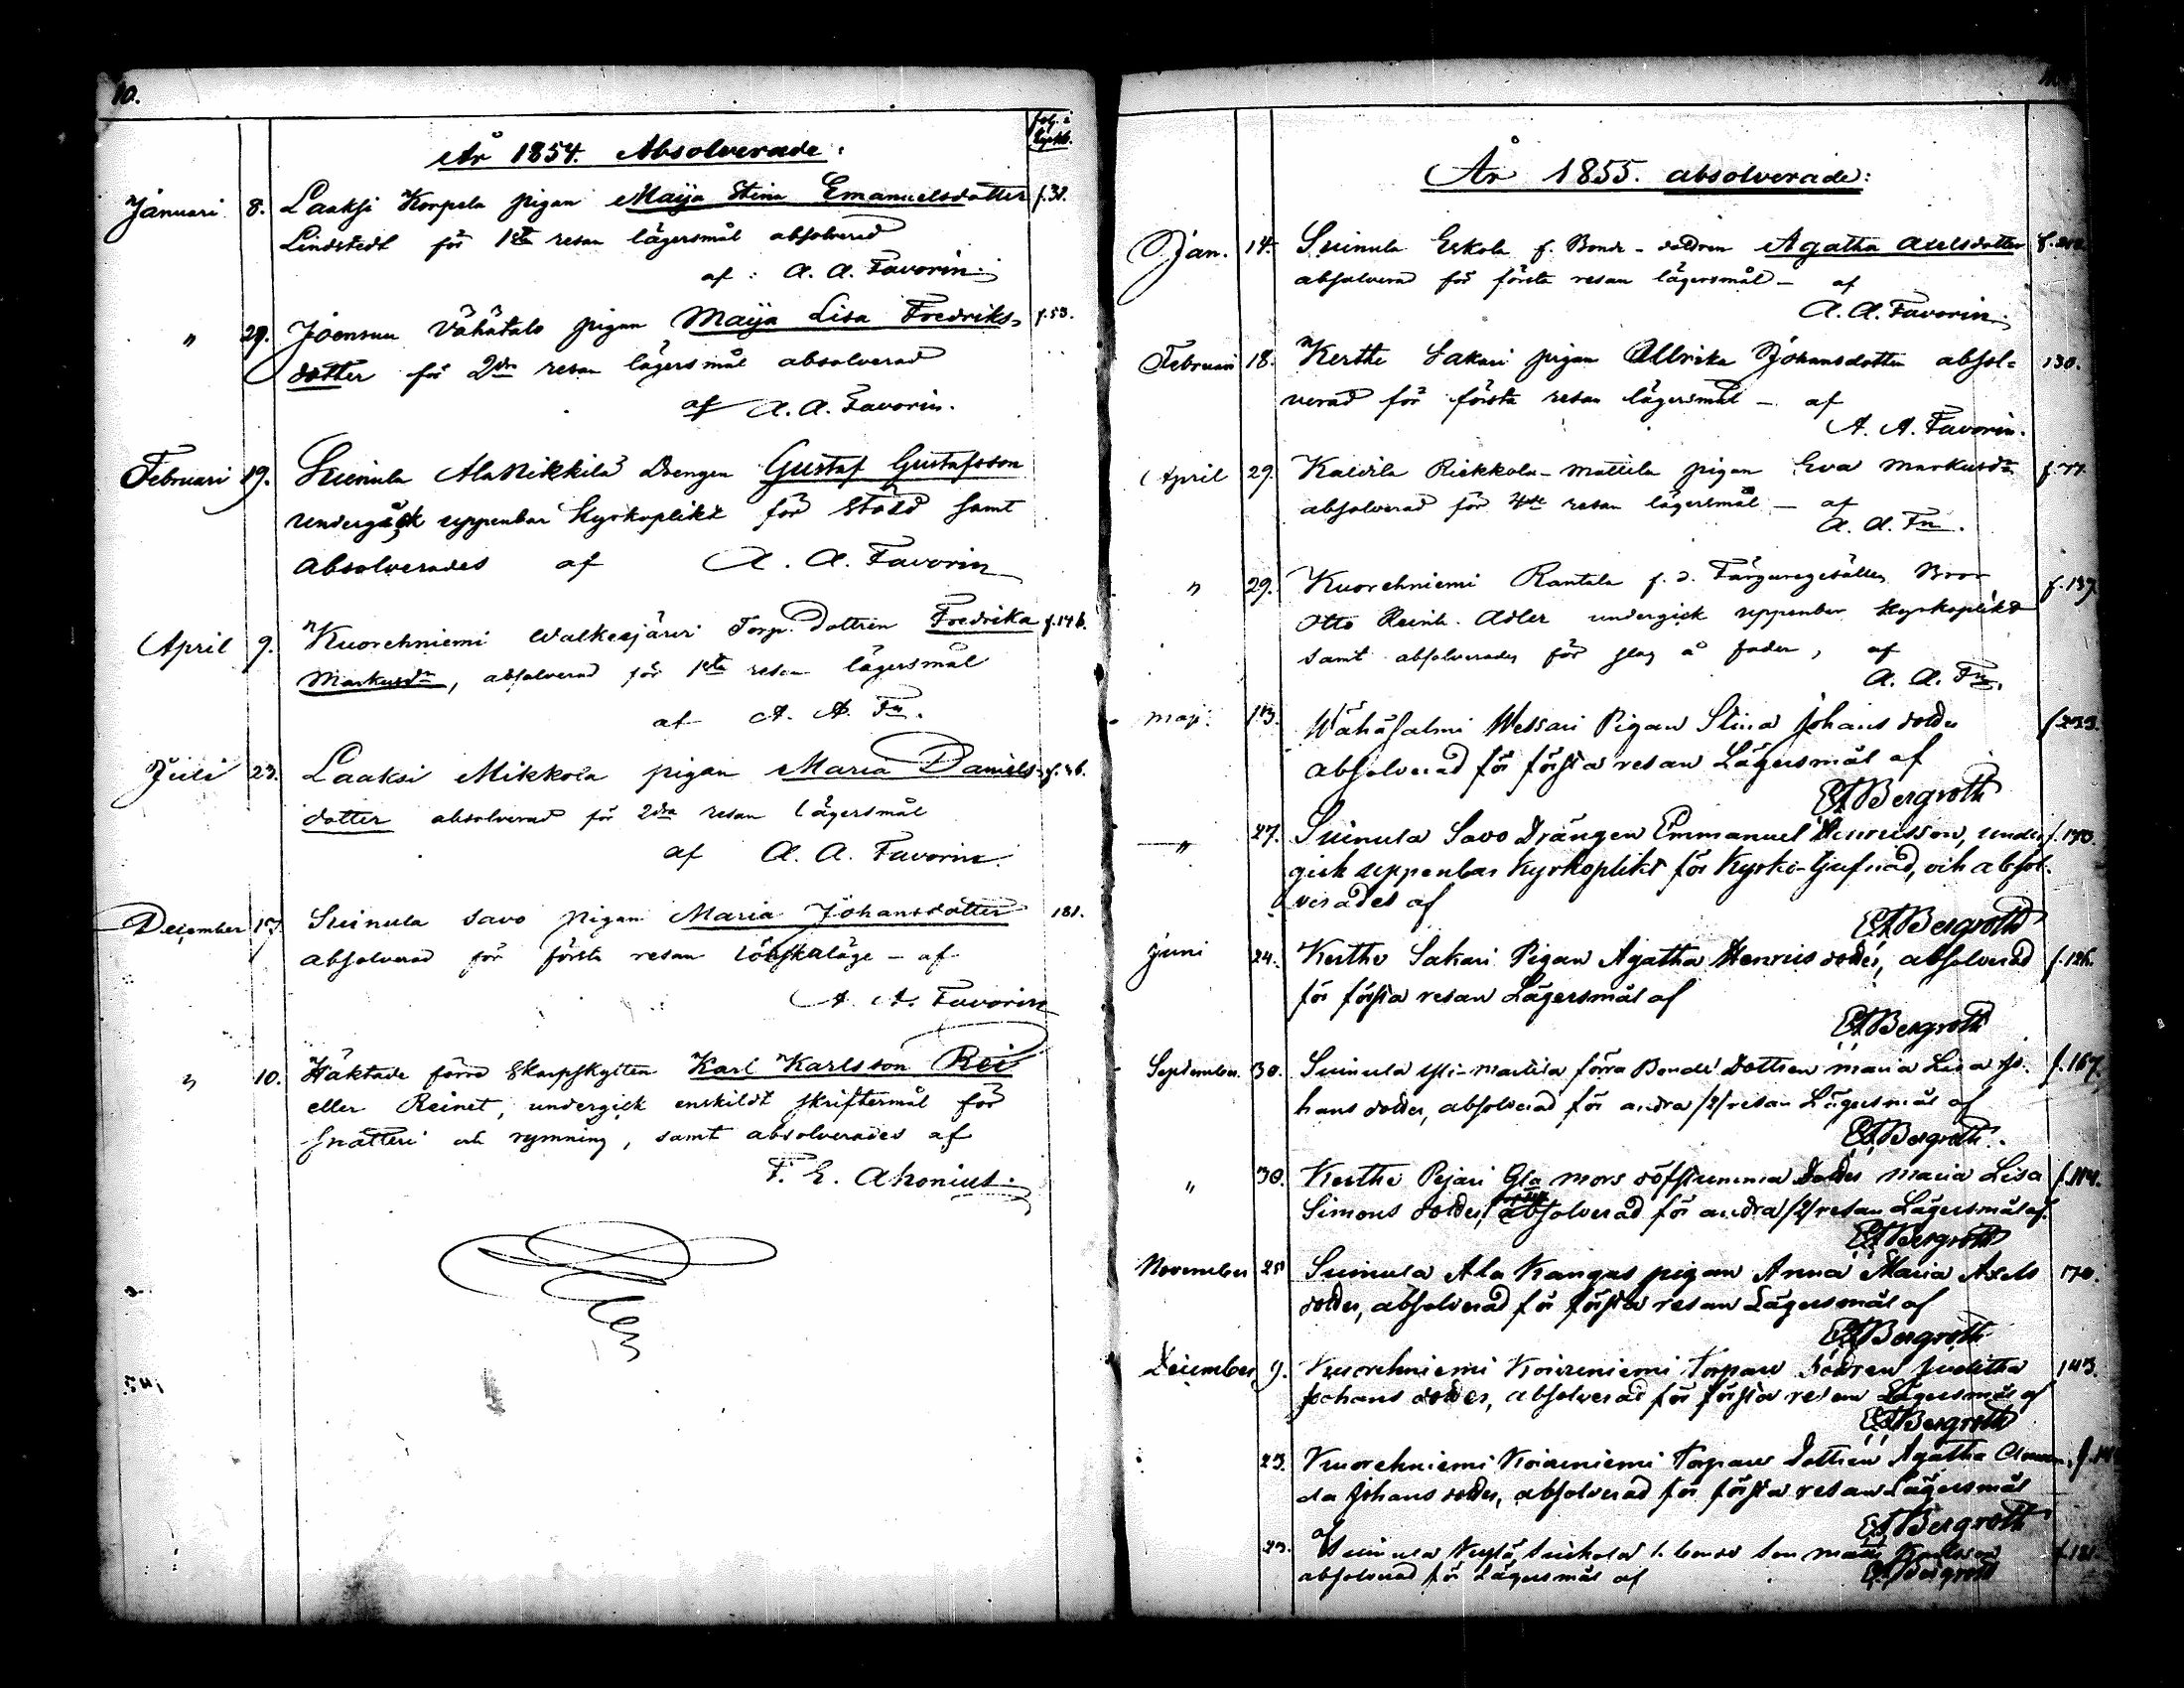 10.
År 1854. Absolverade:
Januari 8. Laaksi Korpela pigan Maija Stina Emanuelsdotter f.31.
Lindstedt för 1sta resan lägersmål absolverad
af: A. A. Favorin.
" 29. Joensuu Vähätalo pigan Maija Lisa Fredriks= f.53.
dotter för 2dra resan lägersmål absolverad
af A. A. Favorin.
Februari 19. Suinula AlaNikkilä Drengen Gustaf Gustafsson
undergick uppenbar Kyrkoplikt för stöld samt
absolverades af A. A. Favorin
April 9. Kuorehniemi Walkeajärvi Torp. Dottren Fredrika f.146.
Markusdr, absolverad för 1sta resan lägersmål
af A. A. Fn.
Juli 23. Laaksi Mikkola pigan Maria Daniels- f.36.
dotter absolverad för 2dra resan lägersmål
af A. A. Favorin.
December 17. Suinula Savo pigan Maria Johansdotter 181.
absolverad för första resan lönskaläge - af
A. A. Favorin
" 10. Häktade förre Skarpskytten Karl Karlsson Rei
eller Reinet, undergick enskildt skriftermål för
snatteri och rymning, samt absolverades af
F. E. Ahonius.
År 1855. absolverade:
Jan. 14. Suinula Eskola f. Bonde-dottren Agatha Axelsdotter
absolverad för första resan lägersmål - af
A. A. Favorin.
Februari 18. Kerthe Sakari pigan Ullrika Johansdotter absol= 130.
verad för första resan lägersmål - af
A. A. Favorin.
April 29. Kaivila Riekkola-Mattila pigan Eva Markusdr f.77.
absolverad för 4de resan lägersmål - af
A. A. Fn.
" 29. Kuorehniemi Rantala f. d. Färgaregesällen Bror f.137.
Otto Reinh. Adler undergick uppenbar Kyrkoplikt
samt absolverades för slag å fader, af
A. A. Fn.
Maji 13. Wähäsalmi Wessari Pigan Stina Johans dotter f.233.
absolverad för första resan Lägersmål af
Bergroth
" 27. Suinula Savo Drängen Emmanuel Henricsson, under f.170.
gick uppenbar Kyrkoplikt för Kyrko-tjufnad, och absol-
verades af
Bergroth
Juni 24. Kerthe Sakari Pigan Agatha Henrics dotter, absolverad f.126.
för första resan Lägersmål af
Bergroth
September 30. Suinula Yli-Mattila förra Bonde Dottren Maria Lisa Jo- f.167.
hans dotter, absolverad för andra /2/ resan Lägersmål af
Bergroth.
" 30. Kerthe Pejari Gla mors döfstumma Dotter Maria Lisa f.114.
Simons dotter, absolverad för andra /2/ resan Lägersmål af
Bergroth
November 25 Suinula Ala Kangas pigan Anna Maria Axels 170.
dotter, absolverad för första resan Lägersmål af
Bergroth
December 9. Kuorehniemi Koivuniemi Torpare Dottren Juditha 143.
Johans dotter, absolverad för första resan Lägersmål af
Bergroth
23. Kuorehniemi Koivuniemi Torpare Dottren Agatha
da Johans dotter, absolverad för första resan Lägersmål
af Bergroth
23. Suinula son Matts Karlsson
absolverad för Lägersmål af Bergroth